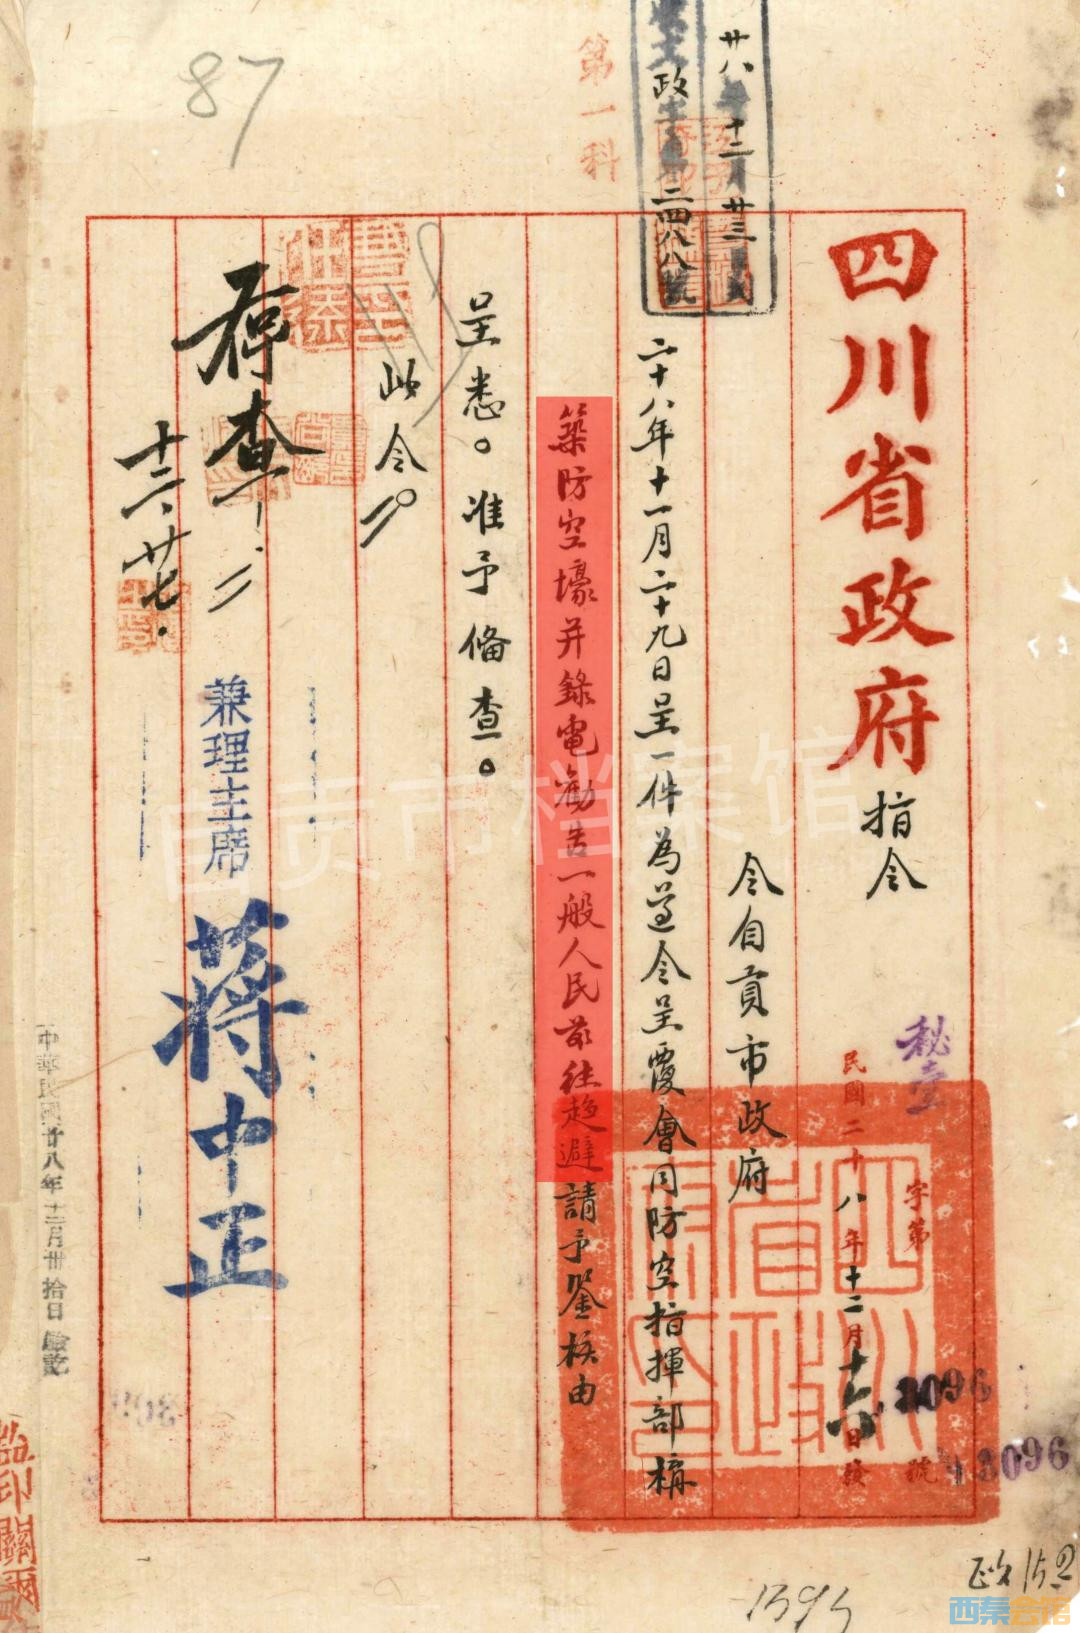 四川省政府指令
秘壹字第13096號
民國二十八年十二月十六日發
令自貢市政府
二十八年十一月二十九日呈一件為遵令呈覆會同防空指揮部構
築防空壕并錄電勸告一般人民前往趨避請予鑒核由
呈悉。准予備查。
此令
兼理主席
蔣中正
存查
十二、廿七.
第一科
廿八年十二月廿三日
二四八八號
87
中華民國廿八年十二月卅拾日
監印
3096
自贡市档案馆
西秦会馆